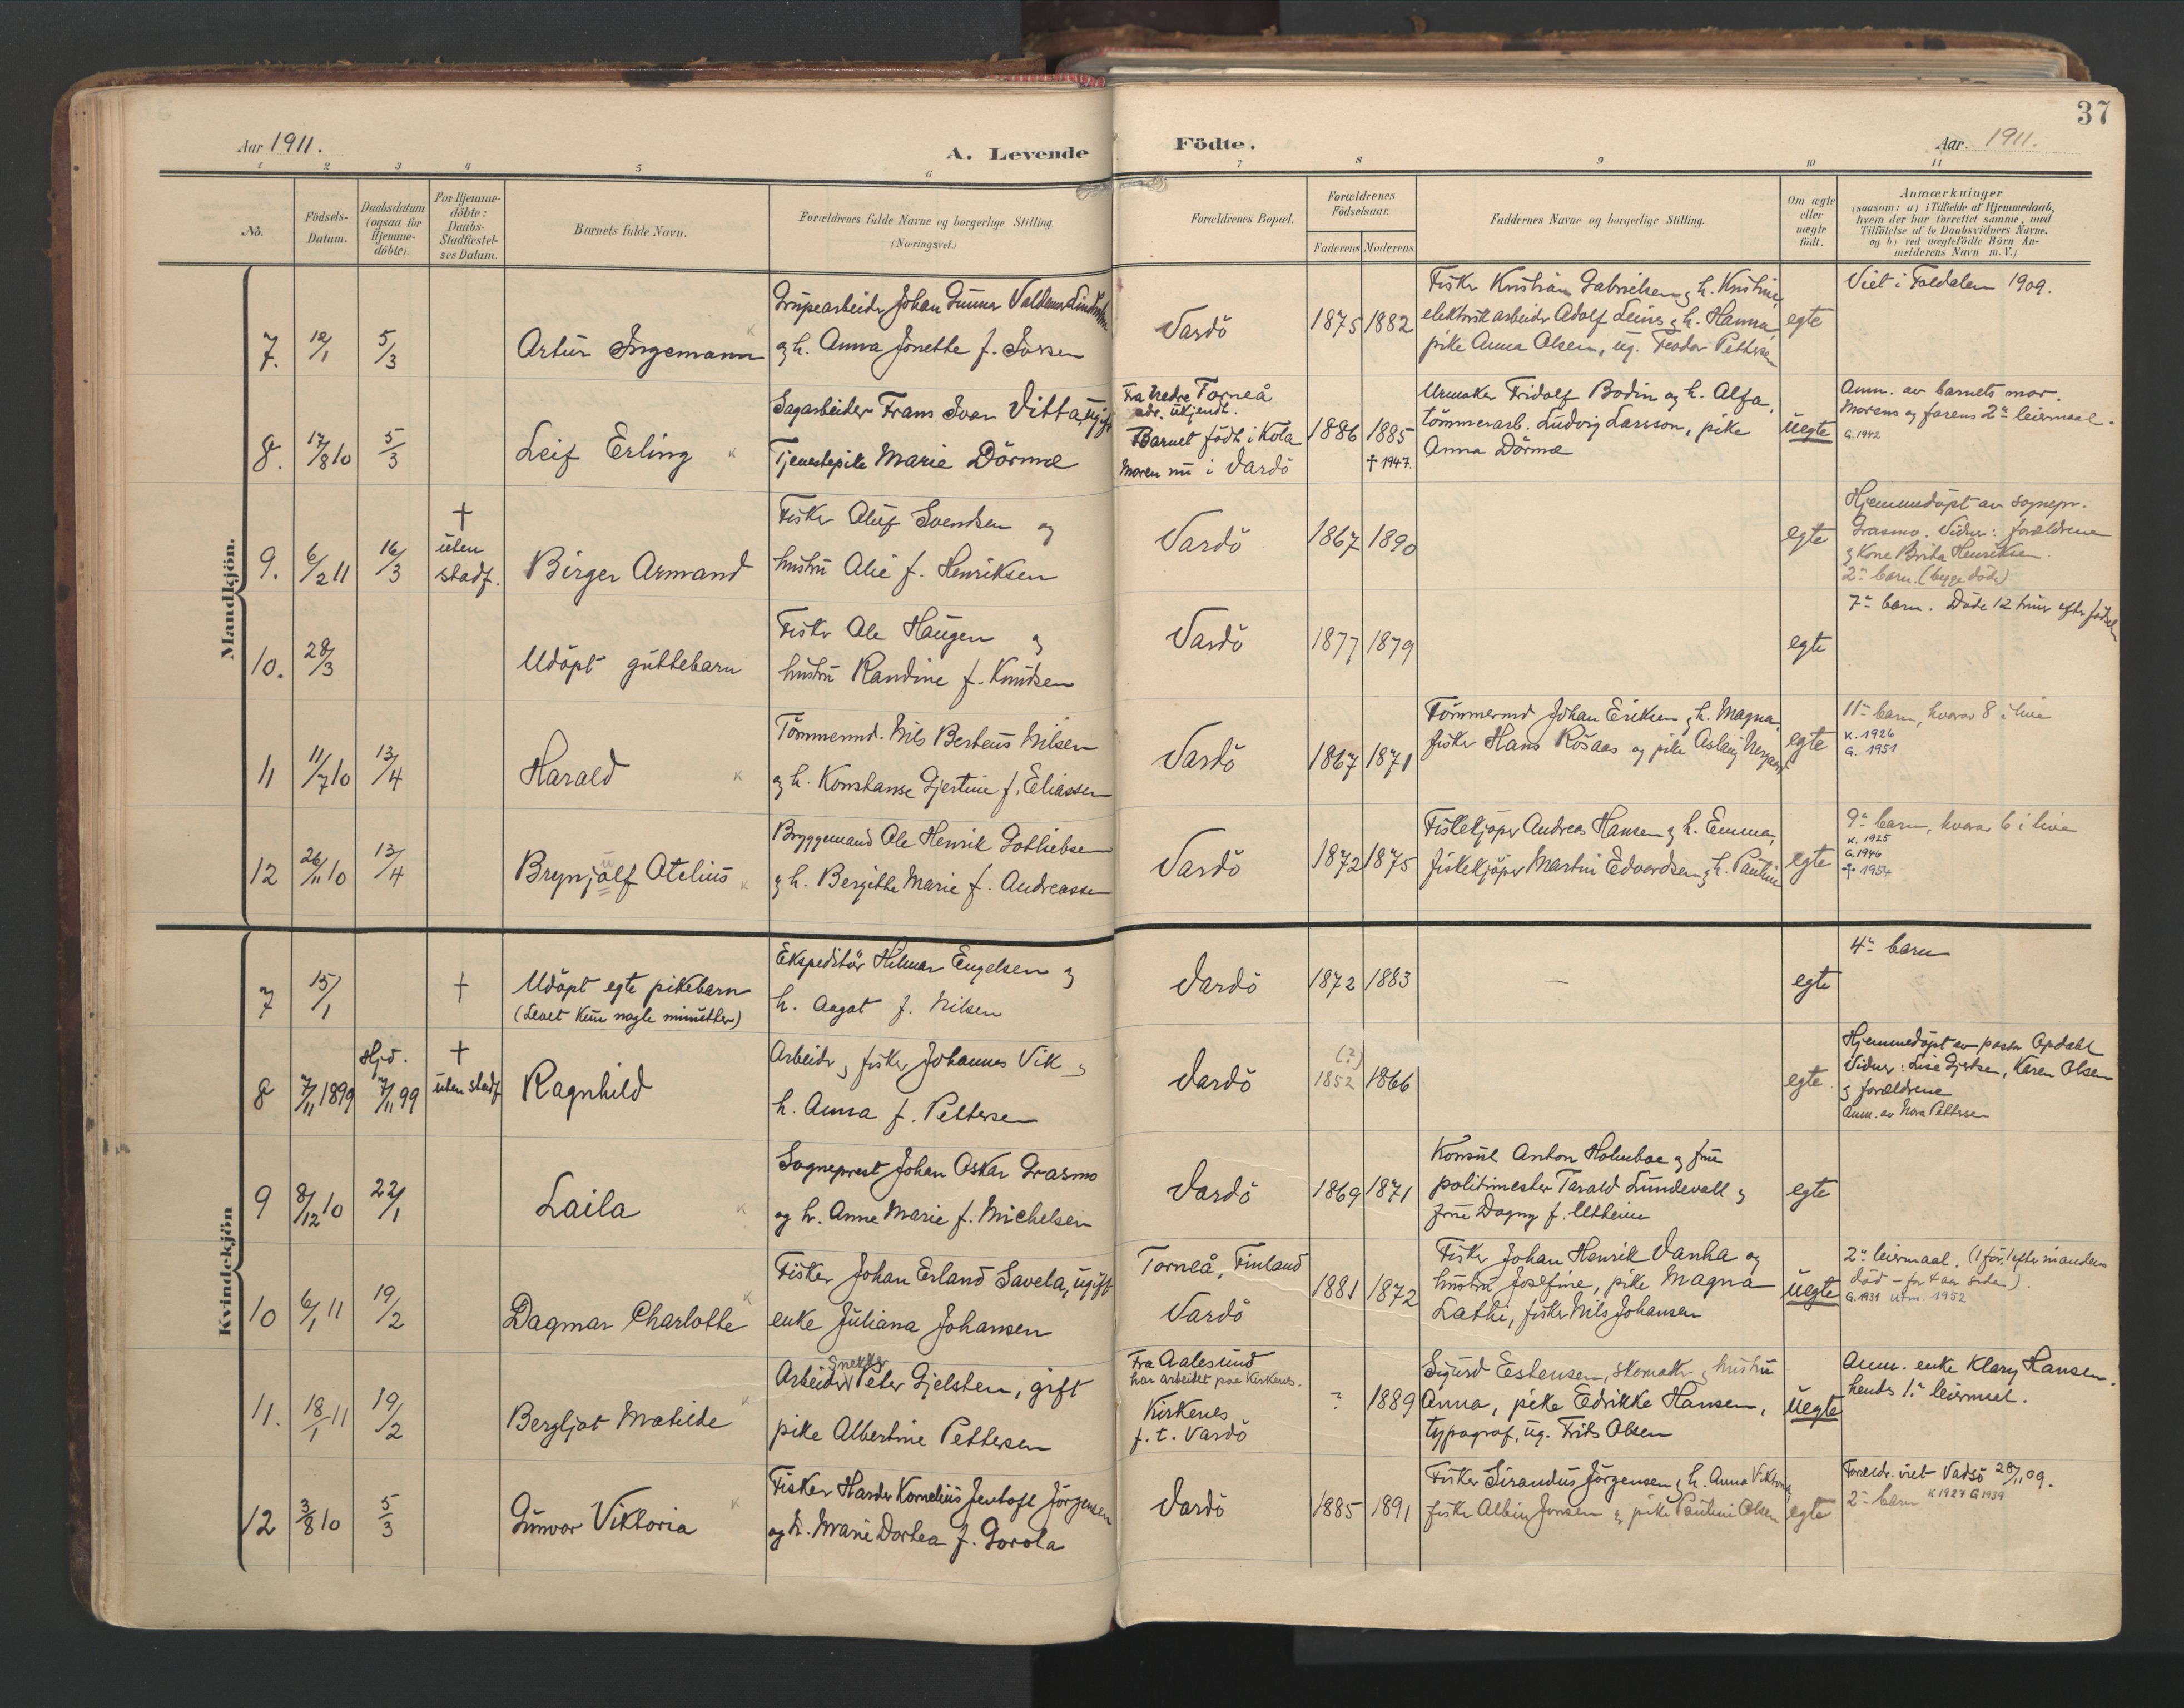 37
Aar 1911.
A. Levende
Födte.
Aar. 1911.
1 2 3 4 5 6 7 8 9 10 11
No.
Födsels-Datum.
Daabsdatum (ogsaa for Hjemme-döbte).
For Hjemme-döbte: Daabs-Stadfæstel-ses Datum.
Barnets fulde Navn.
Forældrenes fulde Navne og borgerlige Stilling (Næringsvei.)
Forældrenes Bopæl.
Forældrenes Födselsaar.
Faderens Moderens
Faddernes Navne og borgerlige Stilling.
Om ægte eller uægte födt.
Anmærkninger
(saasom: a) i Tilfælde af Hjemmedaab, hvem der har forrettet samme, med Tilföielse af to Daabsvidners Navne. og b) ved uægtefödte Börn An-melderens Navn m.V.)
Mandkjön.
7. 12/1 5/3
Artur Ingemann
Grupearbeider Johan Gunnar Valdemar
og h. Anna Jonette f.
Vardö
1875 1882
Fisker Kristian Gabrielsen og h. Kristine,
elektrisk arbeider Adolf og h. Hanna,
pike Anna Olsen, ug. Teodor Pettersen
egte
Viet i Foldalen 1909.
8. 17/8 10 5/3
Leif Erling
Sagarbeider Frans Ivar Vitta, ugift
Tjenestepike Marie Dörmæ
Fra nedre Torneå
adr. ukjendt.
Barnet födt i Kola
Moren nu i Vardö
1886 1885
† 1947.
Urmaker Fridolf Bodin og h. Alfa,
tömmerarb. Ludvig Larsson, pike
Anna Dörmæ
uegte
Anm. av barnets mor.
Morens og farens 2. leiermaal.
G. 1942
9. 6/2 11 16/3
† uten stadf.
Birger Armand
Fisker Oluf Svendsen og
hustru Alie f. Henriksen
Vardö
1867 1890
egte
Hjemmedöpt av sognepr.
Grasmo. Vidner: forældrene
og Kone Brita Henriksen.
2. barn. (begge döde)
10. 28/3
Udöpt guttebarn
Fisker Ole Haugen og
hustru Randine f. Knudsen
Vardö
1877 1879
egte
7. barn. Döde 12 timer efter födsel
11 11/7 10 13/4
Harald
Tömmermd. Nils Berteus Nilsen
og h. Konstanse Gjertine f. Eliassen
Vardö
1867 1871
Tömmermd Johan Eriksen og h. Magna,
fisker Hans Rösaas og pike Aslaug
egte
11. barn, hvorav 8 i live
K. 1926
G. 1951
12 26/11 10 13/4
Brynjolf Otelius
u
Bryggemand Ole Henrik Gotliebsen
og h. Bergitte Marie f. Andreassen
Vardö
1872 1875
Fiskekjöper Andreas Hansen og h. Emma,
fiskekjöper Martin Edvardsen og h. Pauline
egte
9. barn, hvorav 6 i live
K. 1925
G. 1946
† 1954
Kvindekjön
7 15/1 †
Udöpt egte pikebarn
(Levet kun nogle minutter)
Ekspeditör Hilmar Engelsen og
h. Aagot f. Nilsen
Vardö
1872 1883
—
egte
4. barn
8 7/11 1899
Hjd. 7/11 99
† uten stadf
Ragnhild
Arbeider og fisker Johannes Vik og
h. Anna f. Pettersen
Vardö
(?)
1852 1866
egte.
Hjemmedöpt av pastor Opdahl
Vidner: Lise Gjertsen, Karen Olsen
og forældrene
Anm. av Nora Pettersen
9 8/12 10 22/1
Laila
Sogneprest Johan Oskar Grasmo
og h. Anne Marie f. Michelsen
Vardö
1869 1871
Konsul Anton Holmboe og frue
politimester Tarald Lundevall og
frue Dagny f. Utheim
egte
10 6/1 11 19/2
Dagmar Charlotte
Fisker Johan Erland Savela, ugift
enke Juliana Johansen
Torneå, Finland
Vardö
1881 1872
Fisker Johan Henrik Vanha og
hustru Josefine, pike Magna
Lathi, fisker Nils Johansen
uegte
2. leiermaal. (1 för, 1 efter mandens
död – for 4 aar siden).
G. 1931 utm. 1952
11. 18/1 11 19/2
Bergljot Matilde
Snekker
Arbeider Peter Gjelsten, gift
pike Albertine Pettersen
Fra Aalesund
har arbeidet paa Kirkenes.
Kirkenes
f. t. Vardö
? 1889
Sigurd Estensen, skomaker og hustru
Anna, pike Edrikke Hansen,
typograf, ug. Frits Olsen
uegte
Anm. enke Klary Hansen.
hendes 1. leiermaal.
12 3/8 10 5/3
Gunvor Viktoria
Fisker Harder Kornelius Jentoft Jörgensen
og h. Marie Dortea f. Gorola
Vardö
1885 1891
Fisker Sirandus Jörgensen og h. Anna Viktoria
fisker Albin Jensen og pike Pauline Olsen
egte
Foreldr. viet Vadsö 28/11 09.
2. barn K 1927 G 1939